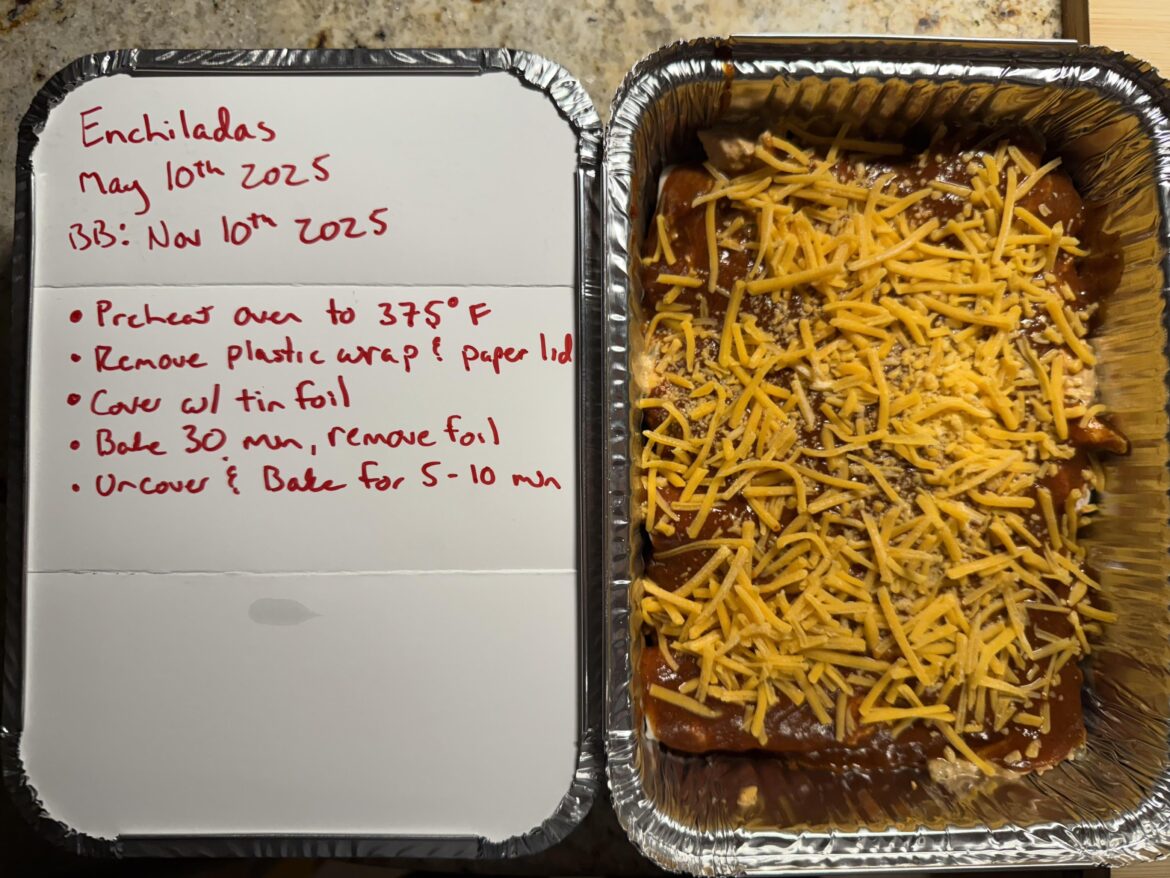 Enchiladas
May 10th 2025
BB: Nov 10th 2025
• Preheat oven to 375° F
• Remove plastic wrap & paper lid
• Cover w/ tin foil
• Bake 30 min, remove foil
• Uncover & Bake for 5-10 min